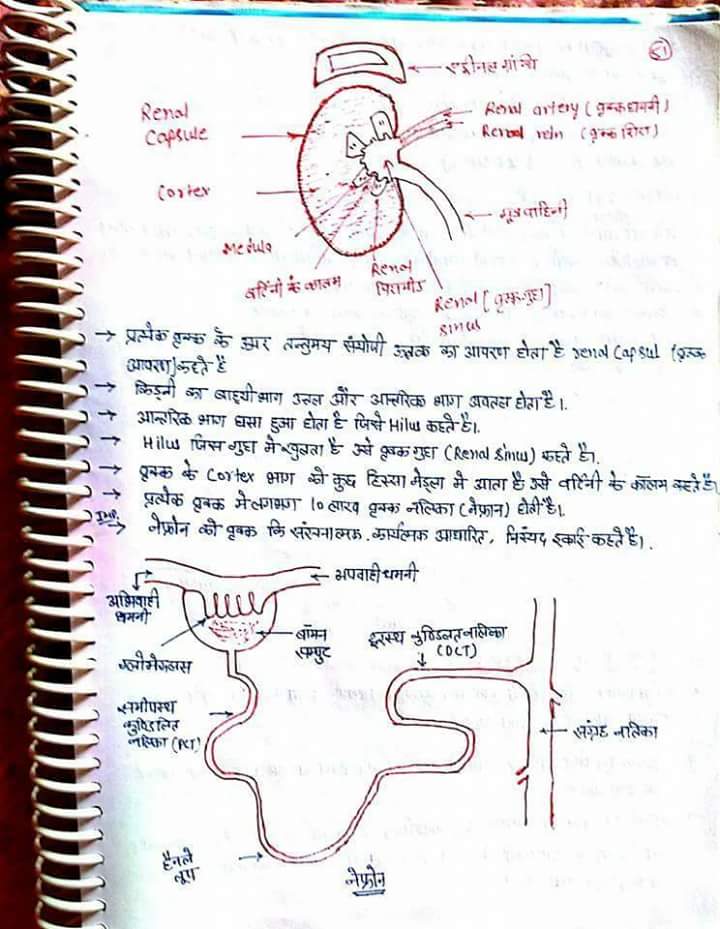 51
एड्रीनल ग्रंथी
Renal Capsule
Renal artery (वृक्क धमनी)
Renal vein (वृक्क शिरा)
Cortex
मूत्र वाहिनी
Medula
वर्टिनी के कालम
Renal पिरामीड
Renal [वृक्क गुहा]
Sinus
→ प्रत्येक वृक्क के ऊपर तन्तुमय संयोजी ऊतक का आवरण होता है renal Capsul (वृक्क
आवरण) कहते है
→ किडनी का बाह्यी भाग उत्तल और आन्तरिक भाग अवतल होता है।.
→ आन्तरिक भाग धसा हुआ होता है जिसे Hilus कहते है।.
→ Hilus जिस गुहा मे खुलता है उसे वृक्क गुहा (Renal sinus) कहते है।.
→ वृक्क के Cortex भाग की कुछ हिस्सा मेडूला मे आता है उसे वर्टिनी के कॉलम कहते है।
→ प्रत्येक वृक्क मे लगभग 10 लाख वृक्क नलिका (नेफ्रान) होती है।.
Imp.
→ नेफ्रोन को वृक्क कि संरचनात्मक, कार्यत्मक आधारित, निस्यंद इकाई कहते है।.
अपवाही धमनी
अभिवाही
धमनी
बॉमन
सम्पुट
दूरस्थ कुण्डिलत नलिका
(DCT)
ग्लोमेरूलस
समीपस्थ
कुण्डिलत
नलिका (PCT)
संग्रह नलिका
हैनले
लूप
नेफ्रोन